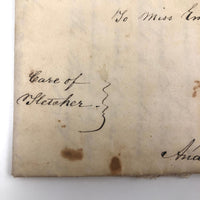 To Miss Em
Care of
Fletcher
And